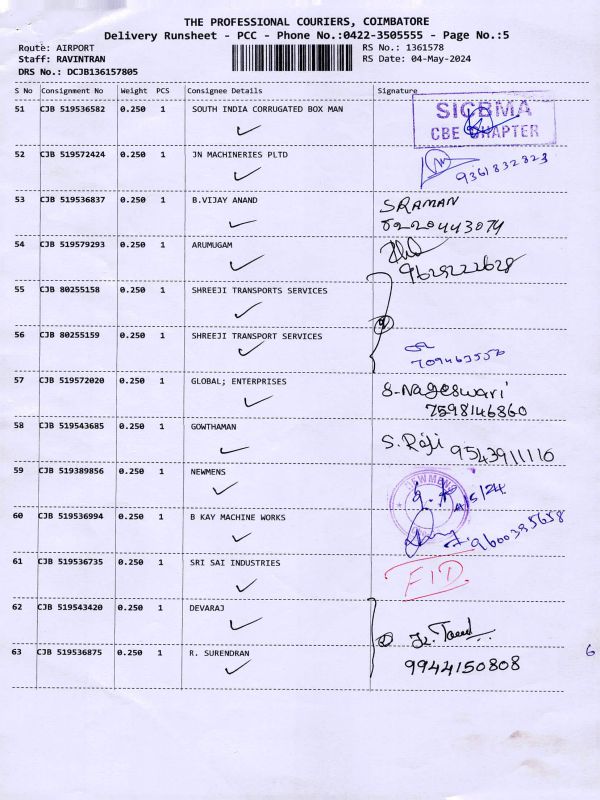 THE PROFESSIONAL COURIERS, COIMBATORE
Delivery Runsheet - PCC - Phone No.:0422-3505555 - Page No.:5
Route: AIRPORT RS No.: 1361578
Staff: RAVINTRAN RS Date: 04-May-2024
DRS No.: DCJB136157805
S No Consignment No Weight PCS Consignee Details Signature
51 CJB 519536582 0.250 1 SOUTH INDIA CORRUGATED BOX MAN
SICBMA
CBE CHAPTER
52 CJB 519572424 0.250 1 JN MACHINERIES PLTD
9361832823
53 CJB 519536837 0.250 1 B.VIJAY ANAND SRAMAN
54 CJB 519579293 0.250 1 ARUMUGAM
9629222628
55 CJB 80255158 0.250 1 SHREEJI TRANSPORTS SERVICES
56 CJB 80255159 0.250 1 SHREEJI TRANSPORT SERVICES
57 CJB 519572020 0.250 1 GLOBAL; ENTERPRISES S.Nageswari
7598146860
58 CJB 519543685 0.250 1 GOWTHAMAN S. Raji 9543911110
59 CJB 519389856 0.250 1 NEWMENS
NEWMENS
60 CJB 519536994 0.250 1 B KAY MACHINE WORKS
9600395658
61 CJB 519536735 0.250 1 SRI SAI INDUSTRIES
62 CJB 519543420 0.250 1 DEVARAJ
63 CJB 519536875 0.250 1 R. SURENDRAN 9944150808
6